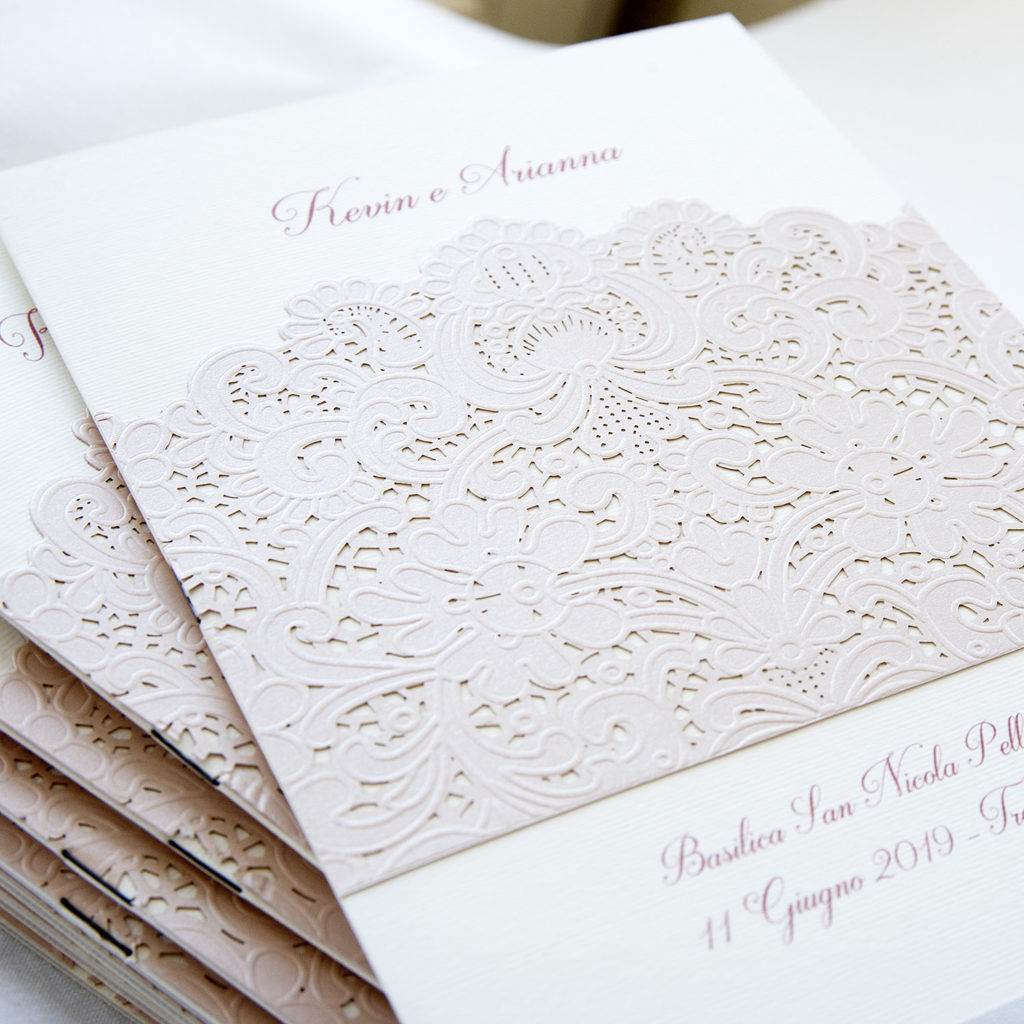 Kevin e Arianna
Basilica San Nicola Pell
11 Giugno 2019 - Tr